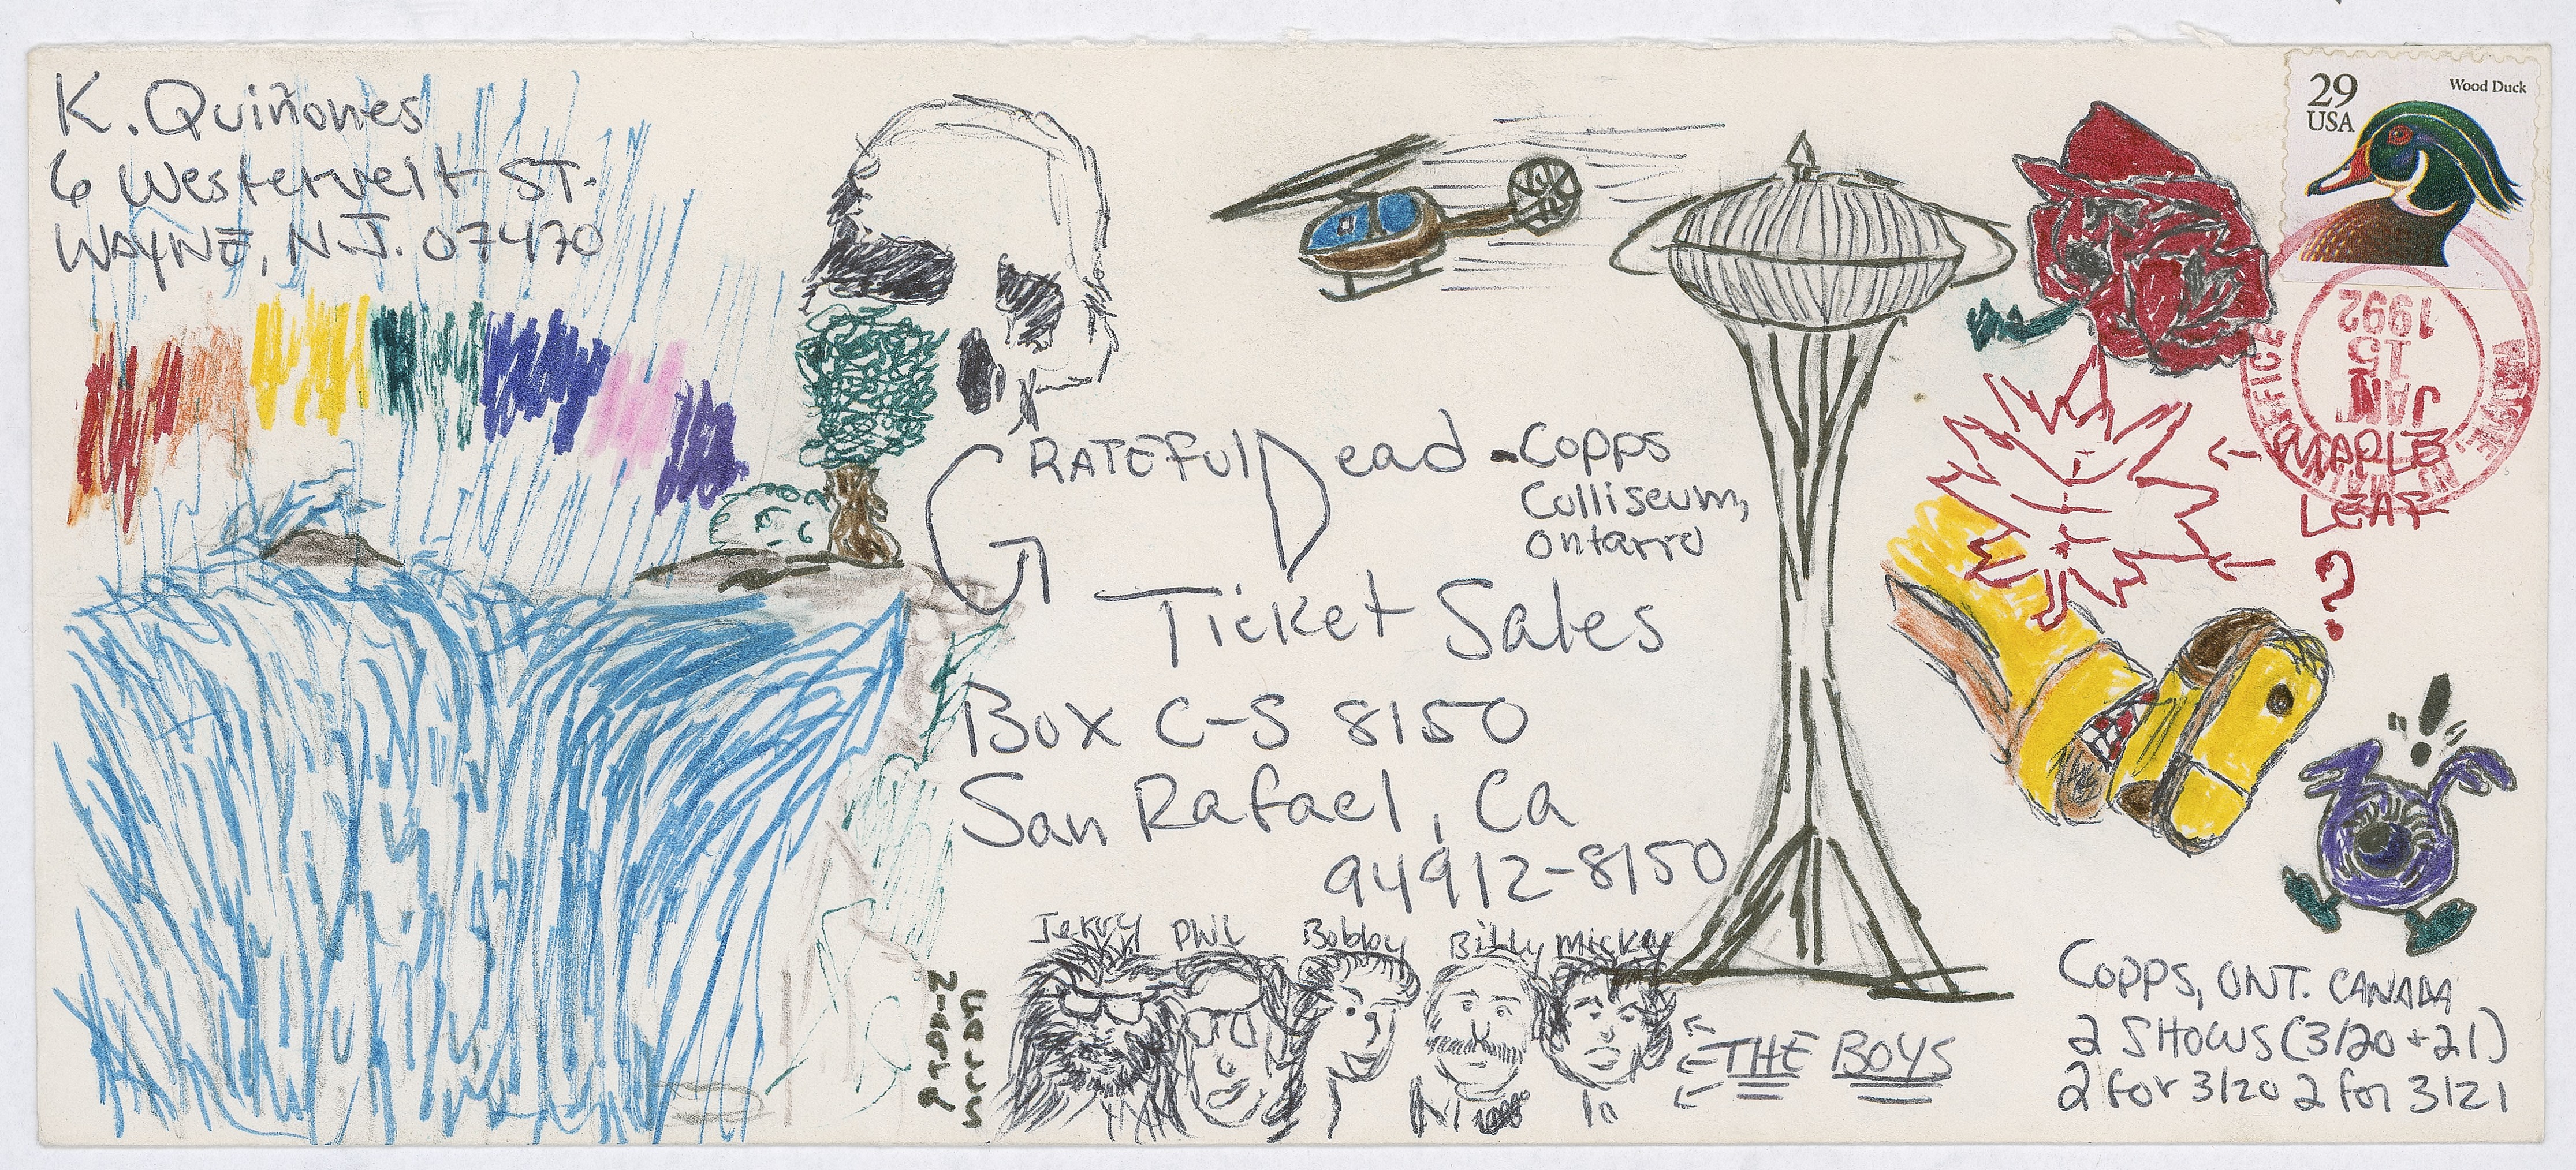 K. Quiñones
6 Westervelt ST.
WAYNE, N.J. 07470
29
USA
Wood Duck
JAN
15
1992
GRATEFUL Dead - Copps
Colliseum,
Ontario
Ticket Sales
Box C-S 8150
San Rafael, Ca
94912-8150
← MAPLE
LEAF
?
!
Jerry Phil Bobby Billy Mickey
← THE BOYS
Copps, ONT. CANADA
2 SHOWS (3/20 + 21)
2 for 3/20 2 for 3/21